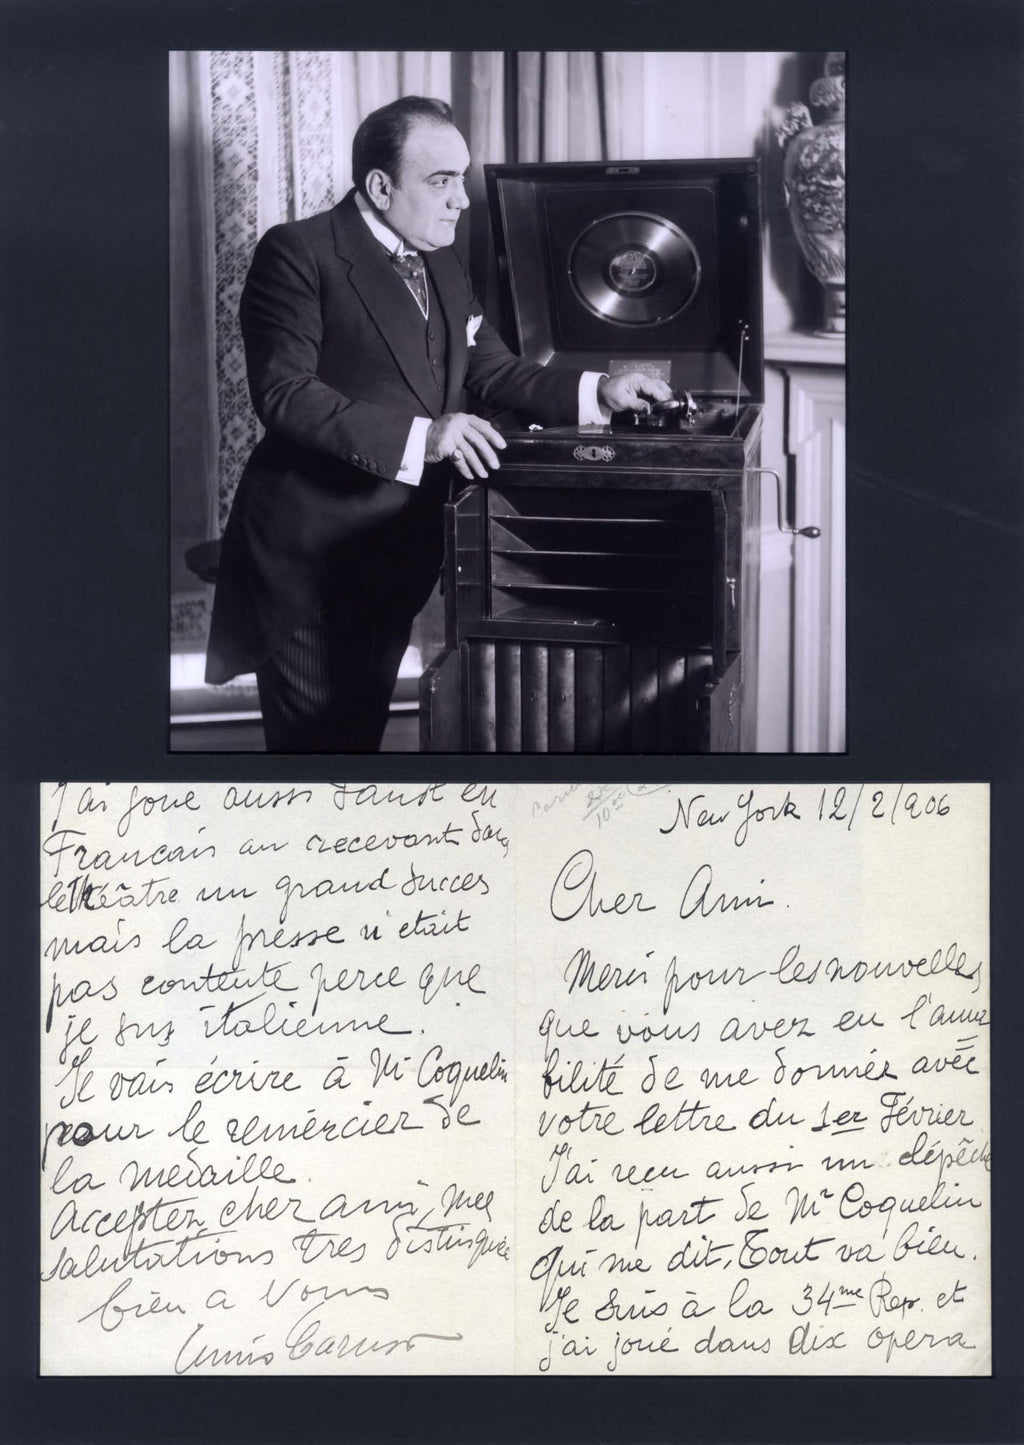 New York 12/2/906
Cher Ami.
Merci pour les nouvelles
que vous avez eu l'ama
bilité de me donnée avèc
votre lettre du 1er Février
J'ai reçu aussi un dépêche
de la part de Mr Coquelin
qui me dit, Tout va bien.
Je suis à la 34me Rep. et
j'ai joué dans dix opera
J'ai joue aussi Faust en
Francais an recevant dans
le théâtre un grand succes
mais la presse n'etait
pas contente perce que
je sus italienne.
Je vais écrire à Mr Coquelin
pour le remércier de
la medaille.
Acceptez, cher ami, mes
salutations tres distinguée
bien a vous
Caruso